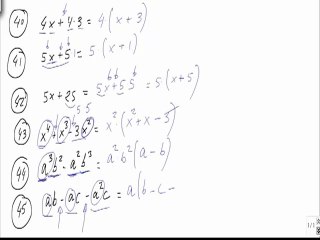 40 4x+4·3 = 4(x+3)
41 5x+5·1 = 5(x+1)
42 5x+25 = 5x+5·5 = 5(x+5)
5 5
43 x⁴+x³-3x² = x²·(x²+x-3)
44 a³b²-a²b³ = a²b²(a-b)
45 ab-ac-a²c = a(b-c-
1/1